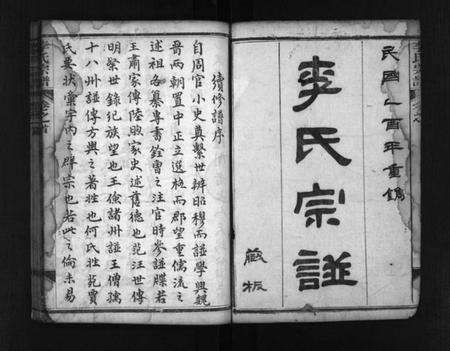 民國乙酉年重鐫
李氏宗譜
藏板
續修譜序
自周官小史奠繫世辨昭穆而譜學興魏
晉兩朝置中正立選檢而郡望重儒流之
述祖名纂專書銓曹之注官時參譜牒若
王肅家傳陸敬家史述舊德也乾汪世傳
明粲世錄紀族望也王儉諸州譜王僧孺
十八州譜傳方輿之著姓也何氏姓苑賈
氏要狀彙宇內之群宗也若此之倫未易